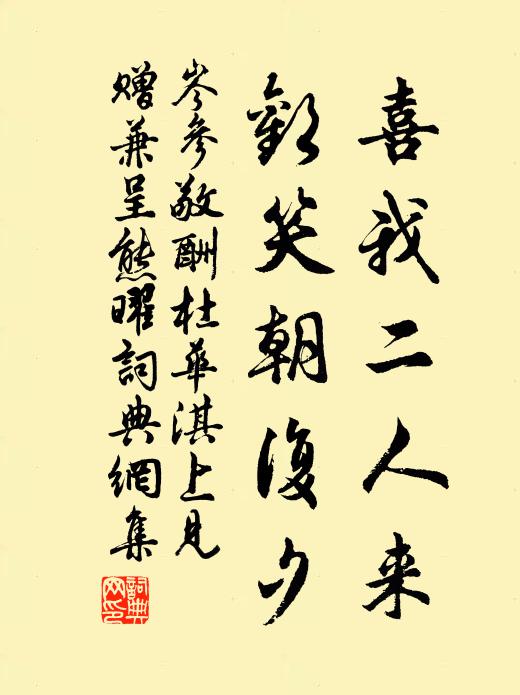 喜我二人来
歡笑朝復夕
岑參敬酬杜華淇上見
贈兼呈熊曜詞典網集
詞典网印